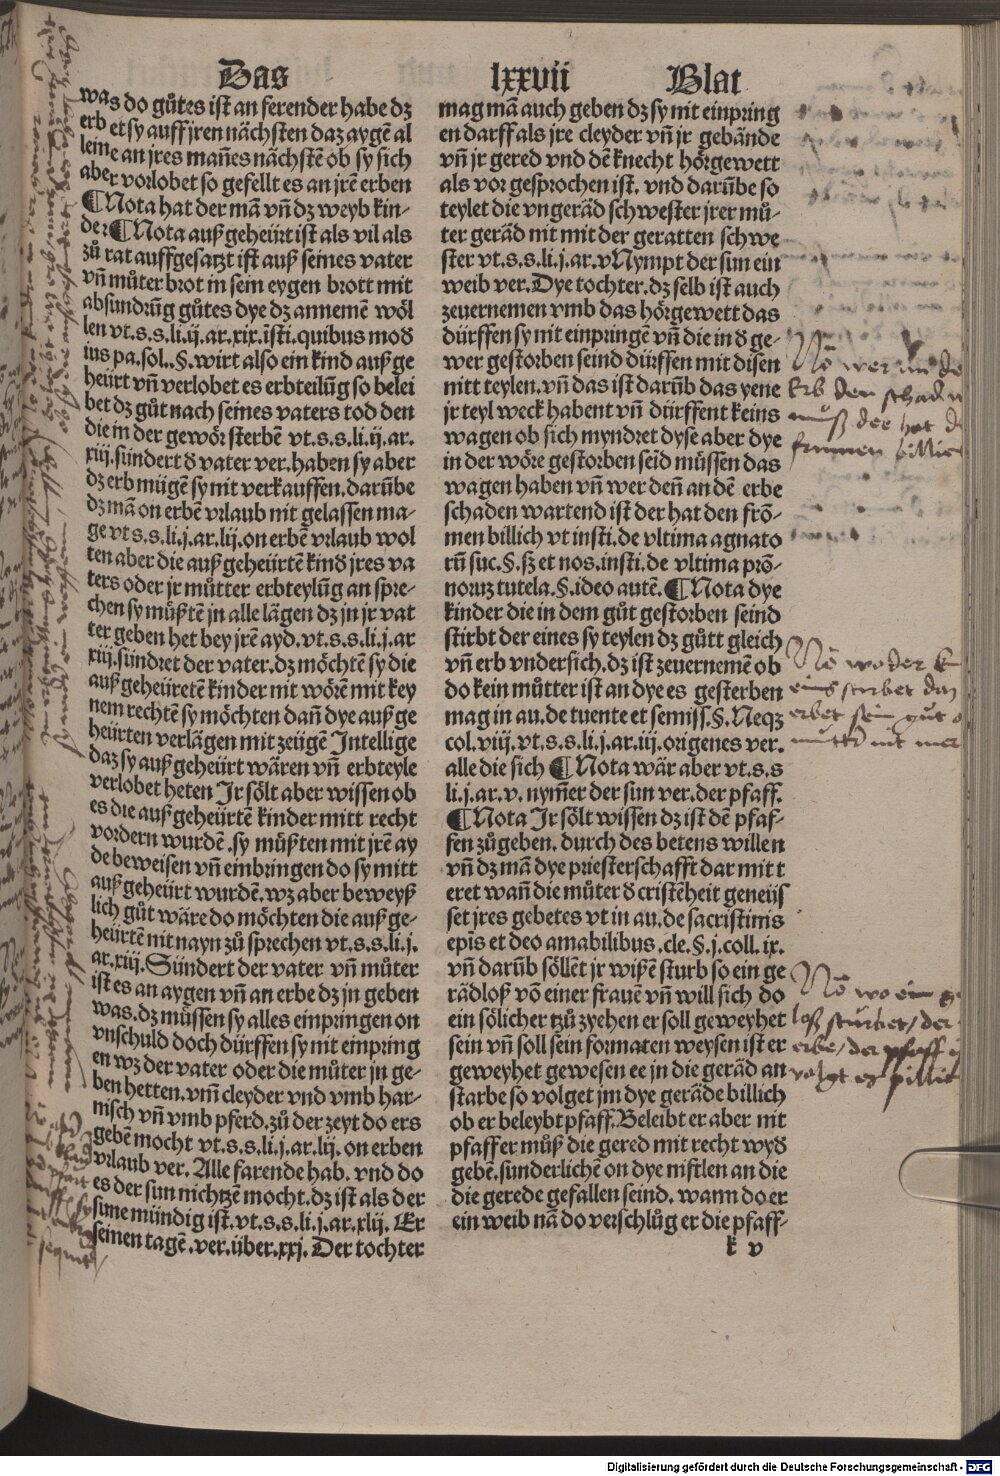 Das lxxvii Blat
was do gůtes ist an ferender habe dz
erb et sy auff jren nächsten daz aygē al
leine an jres mañes nächstē ob sy sich
aber vorlobet so gefellt es an jrē erben
¶Nota hat der mā vñ dz weyb kin-
der ¶Nota auß geheürt ist als vil als
zů rat auffgesatzt ist auß seines vater
vñ můter brot in sein eygen brott mit
absundrūg gůtes dye dz annemē wöl
len vt.s.s.li.ij.ar.xix.isti.quibus mod
ius pa.sol..§.wirt also ein kind auß ge
heürt vñ verlobet es erbteilūg so belei
bet dz gůt nach seines vaters tod den
die in der gewör sterbē vt.s.s.li.ij.ar.
xiij.sündert d vater ver.haben sy aber
dz erb mügē sy nit verkauffen.darūbe
dz mā on erbē vrlaub nit gelassen ma-
ge vt s.s.li.j.ar.lij.on erbē vrlaub wol
ten aber die auß geheürtē kind jres va
ters oder jr můtter erbteylūg an spre-
chen sy můßtē jn alle lägen dz jn jr vat
ter geben het bey jrē ayd.vt.s.s.li.j.ar
xiij.sündret der vater.dz möchtē sy die
auß geheüretē kinder mit wörē mit key
nem rechtē sy möchten dañ dye auß ge
heürten verlägen mit zeügē Intellige
daz sy auß geheürt wären vñ erbteyle
verlobet heten Jr sölt aber wissen ob
es die auß geheürtē kinder mitt recht
vordern wurdē.sy můßten mit jrē ay
de beweisen vñ einbringen do sy mitt
auß geheürt wurdē.wz aber beweyß
lich gůt wäre do möchten die auß ge-
heürtē nit nayn zů sprechen vt.s.s.li.j.
ar.xiij.Sündert der vater vñ můter
ist es an aygen vñ an erbe dz jn geben
was.dz müssen sy alles einpringen on
vnschuld doch dürffen sy nit einpring
en wz der vater oder die můter jn ge-
ben hetten.vm̄ cleyder vnd vmb har-
nisch vñ vmb pferd.zů der zeyt do ers
gebē mocht vt.s.s.li.j.ar.lij.on erben
vrlaub ver. Alle farende hab. vnd do
es der sun nichtzē mocht.dz ist als der
sune mündig ist.vt.s.s.li.j.ar.xlij. Er
seinen tagē.ver.über.xxj. Der tochter
mag mā auch geben dz sy nit einpring
en darff als jre cleyder vñ jr gebände
vñ jr gered vnd dē knecht hörgewett
als vor gesprochen ist. vnd darūbe so
teylet die vngeräd schwester jrer mů-
ter geräd nit mit der geratten schwe
ster vt.s.s.li.j.ar.v Nympt der sun ein
weib ver.Dye tochter.dz selb ist auch
zeuernemen vmb das hörgewett das
dürffen sy nit einpringē vñ die in d ge-
wer gestorben seind dürffen mit disen
nitt teylen.vñ das ist darūb das yene
jr teyl weck habent vñ dürffent keins
wagen ob sich myndret dyse aber dye
in der wöre gestorben seid müssen das
wagen haben vñ wer deñ an dē erbe
schaden wartend ist der hat den frō-
men billich vt insti.de vltima agnato
rū suc.§.sz et nos.insti.de vltima prō-
noruz tutela.§.ideo autē.¶Nota dye
kinder die in dem gůt gestorben seind
stirbt der eines sy teylen dz gůtt gleich
vñ erb vndersich.dz ist zeuernemē ob
do kein můtter ist an dye es gesterben
mag in au.de tuente et semiss.§.Neqz
col.viij.vt.s.s.li.j.ar.iij.origenes ver.
alle die sich ¶Nota wär aber vt.s.s
li.j.ar.v. nym̄er der sun ver.der pfaff.
¶Nota Jr sölt wissen dz ist dē pfaf-
fen zůgeben. durch des betens willen
vñ dz mā dye priesterschafft dar mit t
eret wañ die můter d cristēheit geneüs
set jres gebetes vt in au.de sacristinis
epīs et deo amabilibus.cle.§.j.coll.ix.
vñ darūb söllēt jr wißē sturb so ein ge
rädloß vō einer frauē vñ will sich do
ein sölicher tzů zyehen er soll geweyhet
sein vñ soll sein formaten weysen ist er
geweyhet gewesen ee jn die geräd an
starbe so volget jm dye geräde billich
ob er beleybt pfaff.Beleibt er aber nit
pfaffer můß die gered mit recht wyd
gebē.sunderlichē on dye niftlen an die
die gerede gefallen seind. wann do er
ein weib nā do verschlůg er die pfaff-
k v
Nō wer
erb den schaden
muß der hat
frumen billic
Nō wo der
eins sturbet
erbet sein gut
mutter nit
Nō wo ein
loß sturbet/ der
erbe/ der pfaff
volgt es billic
Digitalisierung gefördert durch die Deutsche Forschungsgemeinschaft - DFG